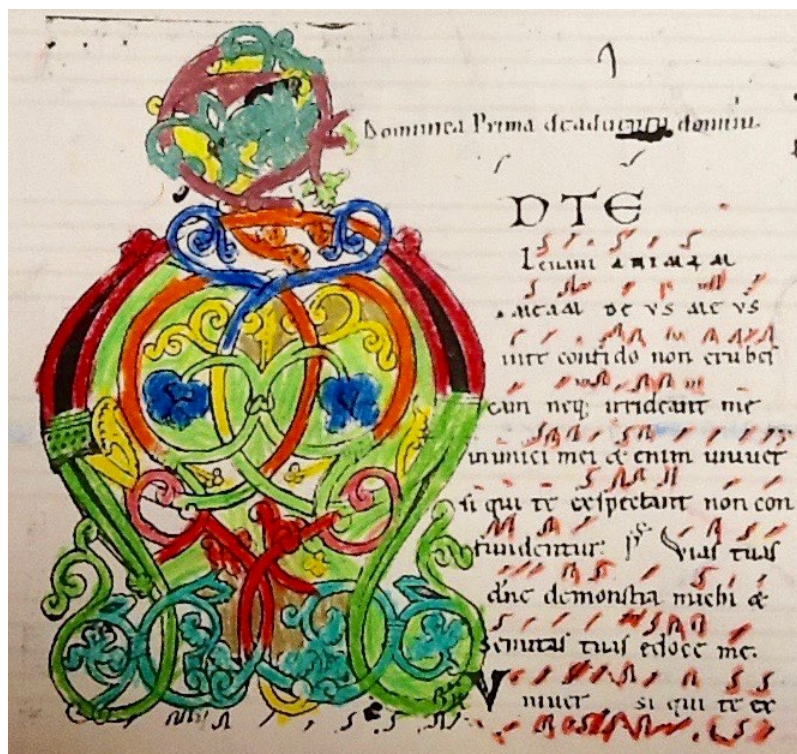 Dominica Prima de aduentu domini
D TE
leuaui animam
meam DE VS ME VS
inte confido non erubes
cam neq; irrideant me
inimici mei & enim uniuer
si qui te exspectant non con
fundentur. Ps Vias tuas
dne demonstra michi &
Semitas tuas edoce me.
V niuer si qui te ex